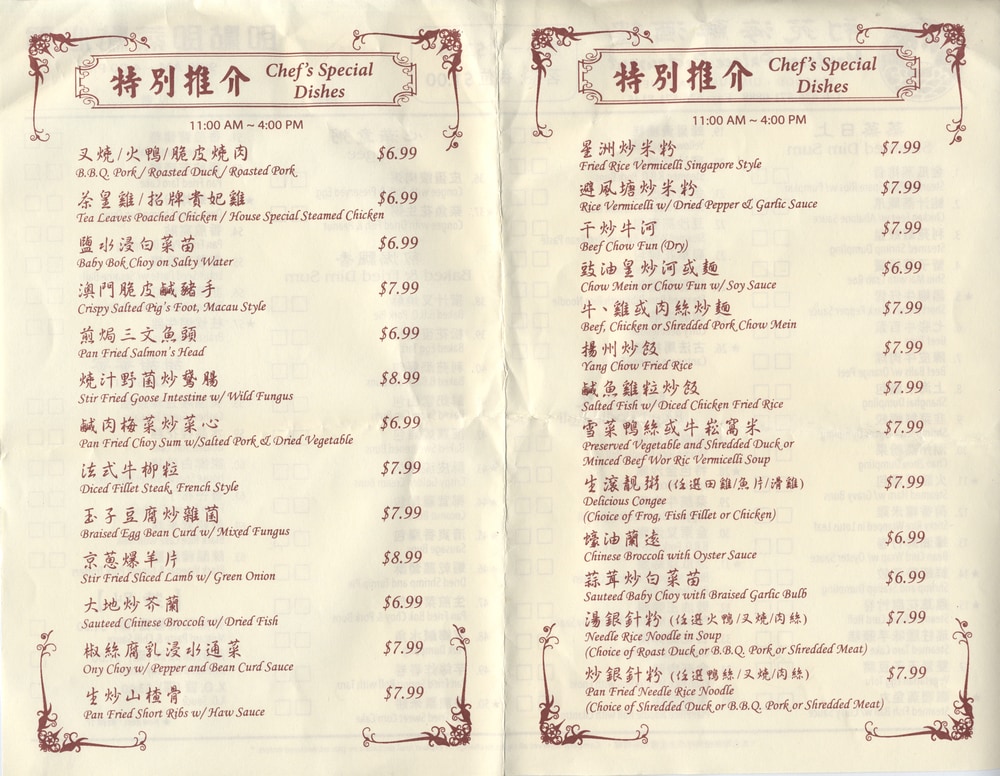 特別推介
Chef's Special
Dishes
11:00 AM ~ 4:00 PM
叉燒/火鴨/脆皮燒肉 $6.99
B.B.Q. Pork / Roasted Duck / Roasted Pork
茶皇雞/招牌貴妃雞 $6.99
Tea Leaves Poached Chicken / House Special Steamed Chicken
鹽水浸白菜苗 $6.99
Baby Bok Choy on Salty Water
澳門脆皮鹹豬手 $7.99
Crispy Salted Pig's Foot, Macau Style
煎焗三文魚頭 $6.99
Pan Fried Salmon's Head
燒汁野菌炒鵞腸 $8.99
Stir Fried Goose Intestine w/ Wild Fungus
鹹肉梅菜炒菜心 $6.99
Pan Fried Choy Sum w/Salted Pork & Dried Vegetable
法式牛柳粒 $7.99
Diced Fillet Steak, French Style
玉子豆腐炒雜菌 $7.99
Braised Egg Bean Curd w/ Mixed Fungus
京蔥爆羊片 $8.99
Stir Fried Sliced Lamb w/ Green Onion
大地炒芥蘭 $6.99
Sauteed Chinese Broccoli w/ Dried Fish
椒絲腐乳浸水通菜 $7.99
Ony Choy w/ Pepper and Bean Curd Sauce
生炒山楂骨 $7.99
Pan Fried Short Ribs w/ Haw Sauce
特別推介
Chef's Special
Dishes
11:00 AM ~ 4:00 PM
星洲炒米粉 $7.99
Fried Rice Vermicelli Singapore Style
避風塘炒米粉 $7.99
Rice Vermicelli w/ Dried Pepper & Garlic Sauce
干炒牛河 $7.99
Beef Chow Fun (Dry)
豉油皇炒河或麵 $6.99
Chow Mein or Chow Fun w/ Soy Sauce
牛、雞或肉絲炒麵 $7.99
Beef, Chicken or Shredded Pork Chow Mein
揚州炒飯 $7.99
Yang Chow Fried Rice
鹹魚雞粒炒飯 $7.99
Salted Fish w/ Diced Chicken Fried Rice
雪菜鴨絲或牛崧窩米 $7.99
Preserved Vegetable and Shredded Duck or
Minced Beef Wor Ric Vermicelli Soup
生滾靚粥 (任選田雞/魚片/滑雞) $7.99
Delicious Congee
(Choice of Frog, Fish Fillet or Chicken)
蠔油蘭遠 $6.99
Chinese Broccoli with Oyster Sauce
蒜茸炒白菜苗 $6.99
Sauteed Baby Choy with Braised Garlic Bulb
湯銀針粉 (任選火鴨/叉燒/肉絲) $7.99
Needle Rice Noodle in Soup
(Choice of Roast Duck or B.B.Q. Pork or Shredded Meat)
炒銀針粉 (任選鴨絲/叉燒/肉絲) $7.99
Pan Fried Needle Rice Noodle
(Choice of Shredded Duck or B.B.Q. Pork or Shredded Meat)